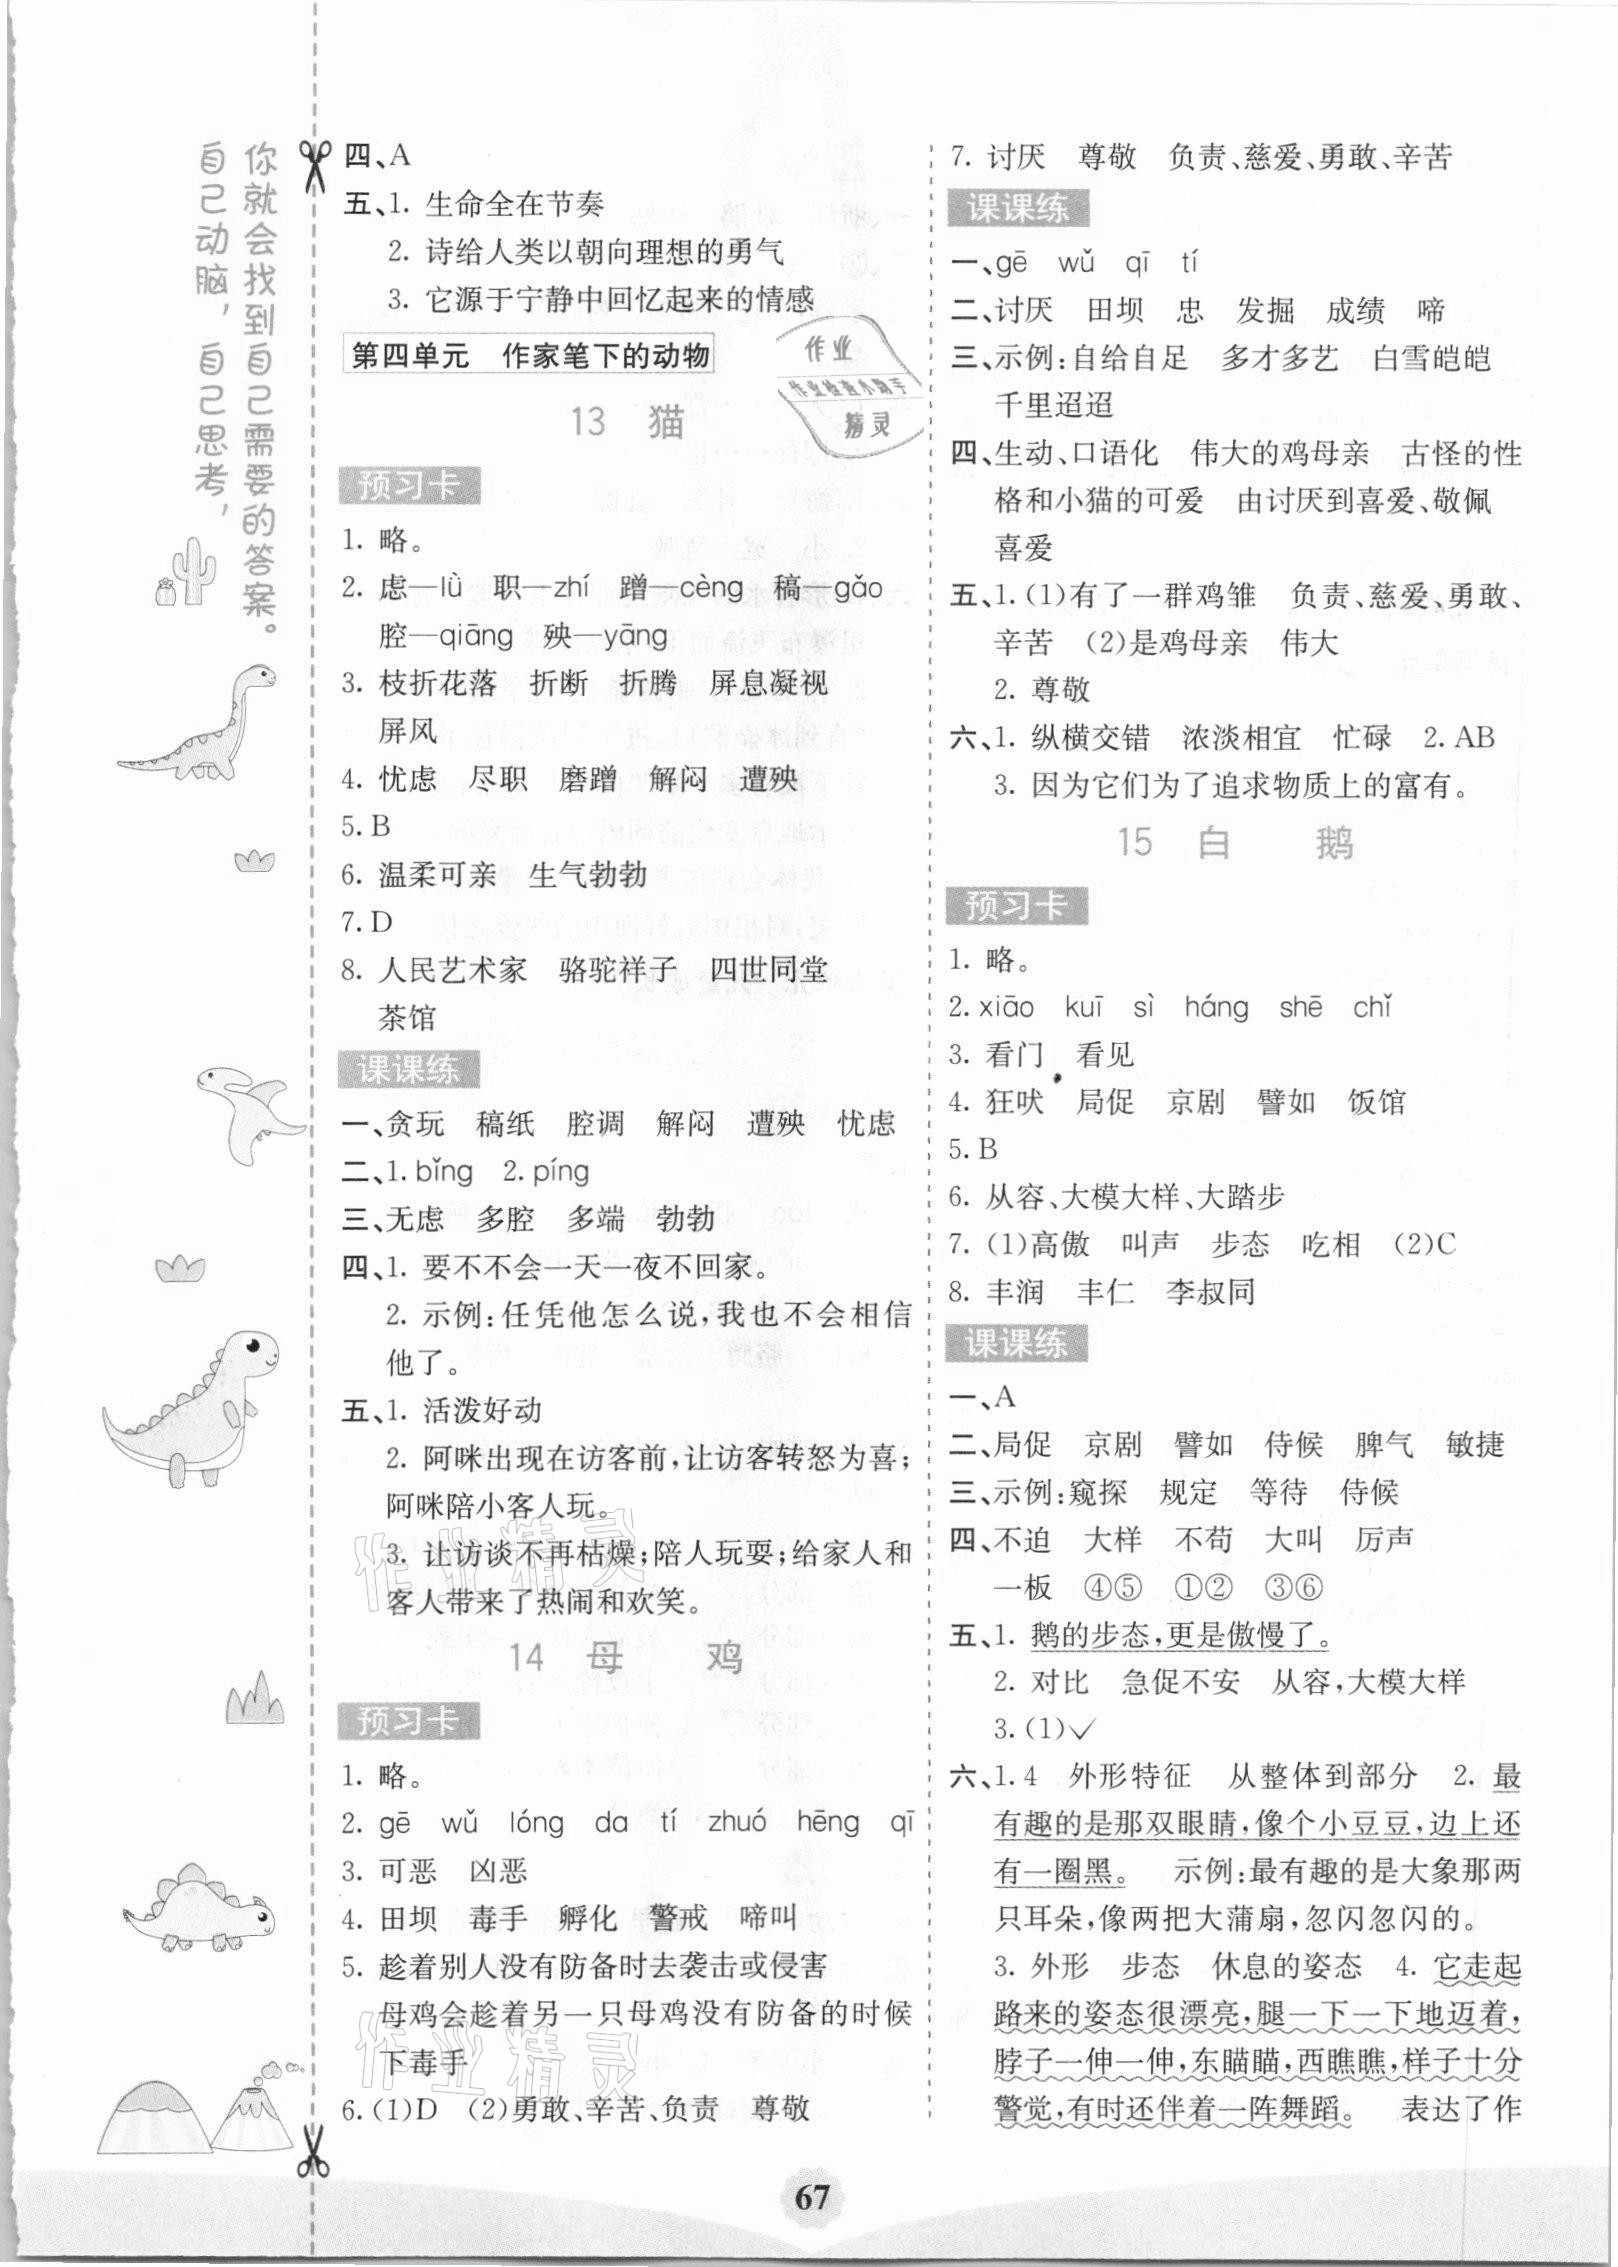 你就会找到自己需要的答案。
自己动脑，自己思考，
四、A
五、1. 生命全在节奏
2. 诗给人类以朝向理想的勇气
3. 它源于宁静中回忆起来的情感
第四单元 作家笔下的动物
作业
作业检查小助手
精灵
13 猫
预习卡
1. 略。
2. 虑—lǜ 职—zhí 蹭—cèng 稿—gǎo
腔—qiāng 殃—yāng
3. 枝折花落 折断 折腾 屏息凝视
屏风
4. 忧虑 尽职 磨蹭 解闷 遭殃
5. B
6. 温柔可亲 生气勃勃
7. D
8. 人民艺术家 骆驼祥子 四世同堂
茶馆
课课练
一、贪玩 稿纸 腔调 解闷 遭殃 忧虑
二、1. bǐng 2. píng
三、无虑 多腔 多端 勃勃
四、1. 要不不会一天一夜不回家。
2. 示例：任凭他怎么说，我也不会相信
他了。
五、1. 活泼好动
2. 阿咪出现在访客前，让访客转怒为喜；
阿咪陪小客人玩。
3. 让访谈不再枯燥；陪人玩耍；给家人和
客人带来了热闹和欢笑。
作业精灵
14 母鸡
预习卡
1. 略。
2. gē wǔ lóng da tí zhuó hēng qī
3. 可恶 凶恶
4. 田坝 毒手 孵化 警戒 啼叫
5. 趁着别人没有防备时去袭击或侵害
母鸡会趁着另一只母鸡没有防备的时候
下毒手
作业精灵
6. (1)D (2)勇敢、辛苦、负责 尊敬
7. 讨厌 尊敬 负责、慈爱、勇敢、辛苦
课课练
一、gē wǔ qī tí
二、讨厌 田坝 忠 发掘 成绩 啼
三、示例：自给自足 多才多艺 白雪皑皑
千里迢迢
四、生动、口语化 伟大的鸡母亲 古怪的性
格和小猫的可爱 由讨厌到喜爱、敬佩
喜爱
五、1. (1)有了一群鸡雏 负责、慈爱、勇敢、
辛苦 (2)是鸡母亲 伟大
2. 尊敬
六、1. 纵横交错 浓淡相宜 忙碌 2. AB
3. 因为它们为了追求物质上的富有。
15 白鹅
预习卡
1. 略。
2. xiāo kuī sì háng shē chǐ
3. 看门 看见
4. 狂吠 局促 京剧 譬如 饭馆
5. B
6. 从容、大模大样、大踏步
7. (1)高傲 叫声 步态 吃相 (2)C
8. 丰润 丰仁 李叔同
课课练
一、A
二、局促 京剧 譬如 侍候 脾气 敏捷
三、示例：窥探 规定 等待 侍候
四、不迫 大样 不苟 大叫 厉声
一板 ④⑤ ①② ③⑥
五、1. 鹅的步态，更是傲慢了。
2. 对比 急促不安 从容，大模大样
3. (1)✓
六、1. 4 外形特征 从整体到部分 2. 最
有趣的是那双眼睛，像个小豆豆，边上还
有一圈黑。 示例：最有趣的是大象那两
只耳朵，像两把大蒲扇，忽闪忽闪的。
3. 外形 步态 休息的姿态 4. 它走起
路来的姿态很漂亮，腿一下一下地迈着，
脖子一伸一伸，东瞄瞄，西瞧瞧，样子十分
警觉，有时还伴着一阵舞蹈。 表达了作
67